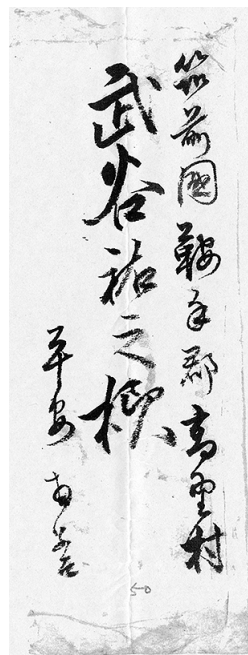 筑前國鞍手郡高野村
武谷祐之様
平安
50